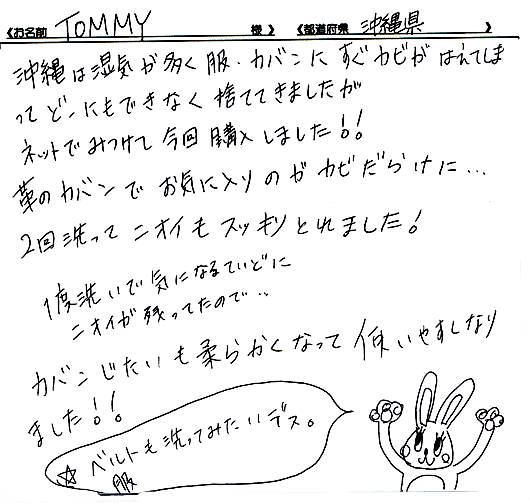 《お名前 TOMMY 様》 《都道府県 沖縄県 》
沖縄は湿気が多く服・カバンにすぐカビがはえてしま
ってどーにもできなく捨ててきましたが
ネットでみつけて今回購入しました!!
革のカバンでお気に入りのがカビだらけに…
2回洗ってニオイもスッキリとれました!
1度洗いで気になるていどに
ニオイが残ってたので…
カバンじたいも柔らかくなって使いやすしなり
ました!!
☆ベルトも洗ってみたいデス。
服